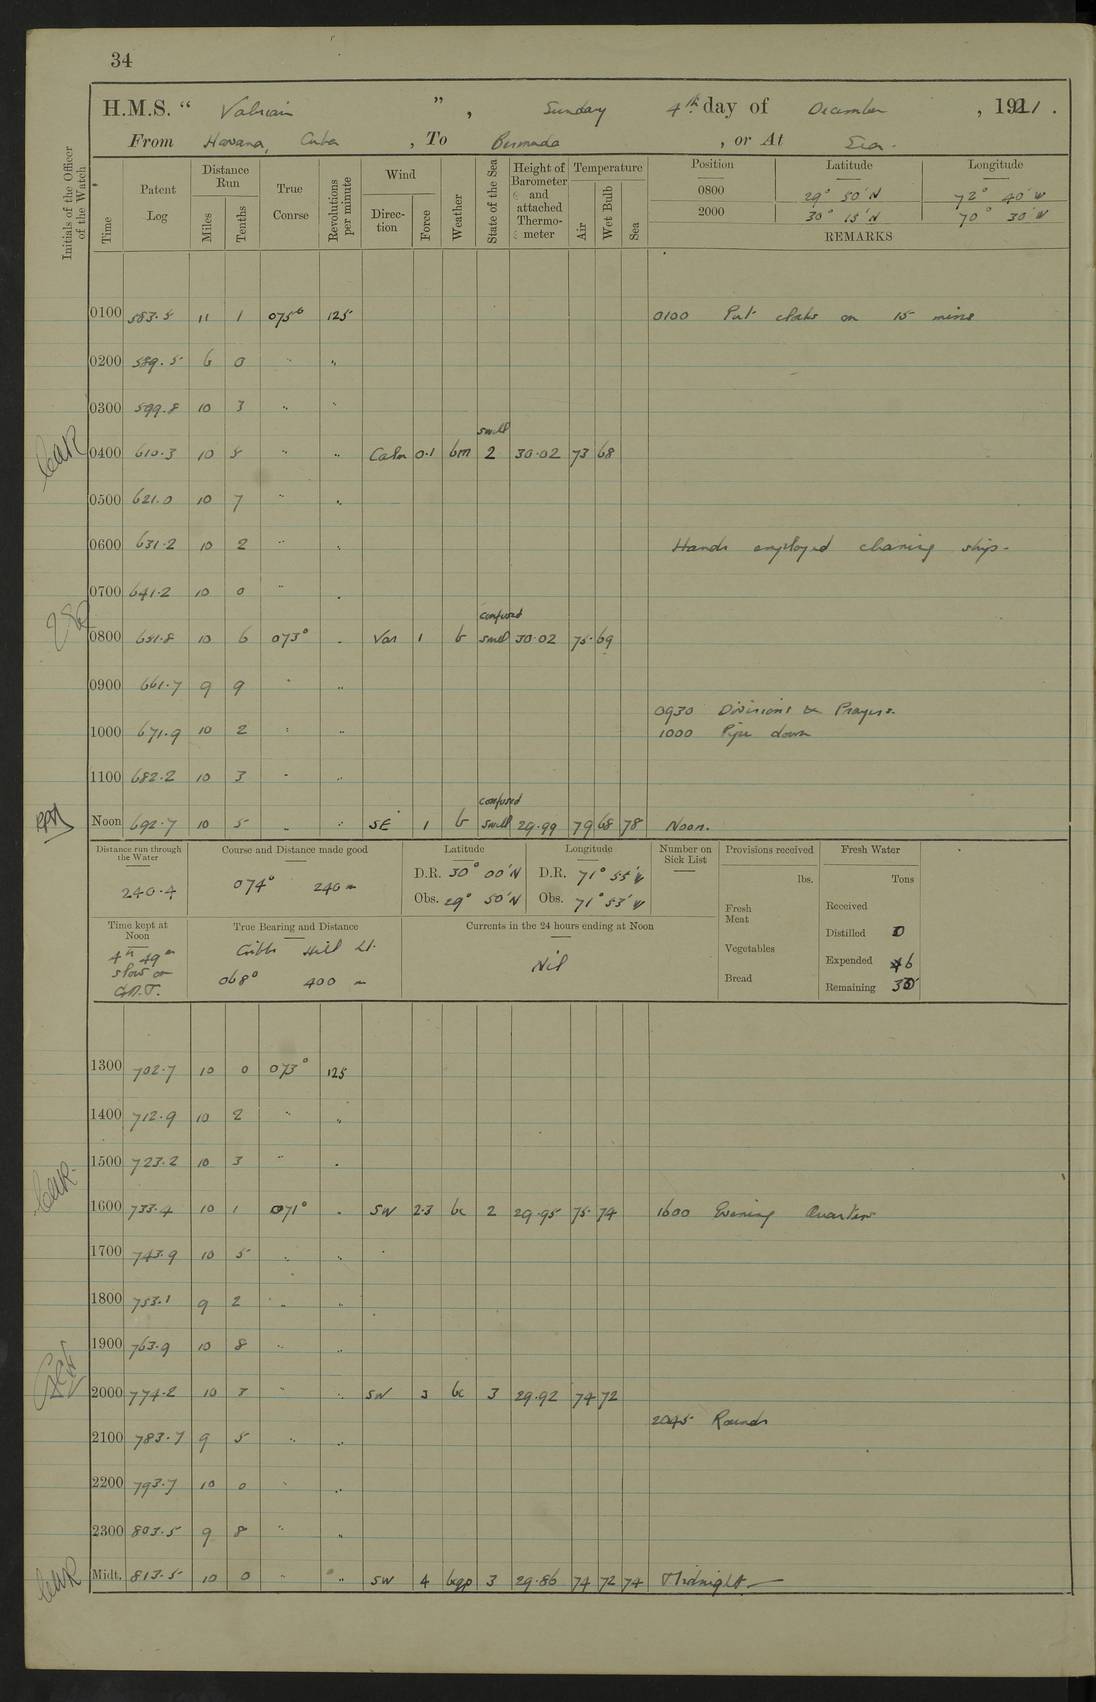 34
H.M.S. “ Valerian ” , Sunday 4th day of December , 1921 .
From Havana, Cuba , To Bermuda , or At Sea.
Initials of the Officer of the Watch
Time
Patent Log
Distance Run
Miles
Tenths
True Course
Revolutions per minute
Wind
Direction
Force
Weather
State of the Sea
Height of Barometer and attached Thermometer
Temperature
Air
Wet Bulb
Sea
Position Latitude Longitude
0800 29° 50' N 72° 40' W
2000 30° 15' N 70° 30' W
REMARKS
0100 583.5 11 1 075° 125 0100 Put clocks on 15 mins
0200 589.5 6 0 " "
0300 599.8 10 3 " "
swell
0400 610.3 10 5 " " Calm 0.1 bm 2 30.02 73 68
0500 621.0 10 7 " "
0600 631.2 10 2 " " Hands employed cleaning ship.
0700 641.2 10 0 " "
confused
0800 651.8 10 6 073° " Var 1 b swell 30.02 75 69
0900 661.7 9 9 " "
0930 Divisions & Prayers.
1000 671.9 10 2 " " 1000 Pipe down
1100 682.2 10 3 " "
confused
Noon 692.7 10 5 " " SE 1 b swell 29.99 79 68 78 Noon.
Distance run through the Water
240.4
Course and Distance made good
074° 240 m
Latitude
D.R. 30° 00' N
Obs. 29° 50' N
Longitude
D.R. 71° 55' W
Obs. 71° 53' W
Number on Sick List
Provisions received
lbs.
Fresh Meat
Vegetables
Bread
Fresh Water
Tons
Received
Distilled 0
Expended 6
Remaining
Time kept at Noon
4h 49m
slow on
G.M.T.
True Bearing and Distance
Gibbs Hill Lt.
068° 400 m
Currents in the 24 hours ending at Noon
Nil
1300 702.7 10 0 073° 125
1400 712.9 10 2 " "
1500 723.2 10 3 " "
1600 733.4 10 1 071° " SW 2.3 bc 2 29.95 75 74 1600 Evening Quarters
1700 743.9 10 5 " "
1800 753.1 9 2 " "
1900 763.9 10 8 " "
2000 774.2 10 3 " " SW 3 bc 3 29.92 74 72
2045 Rounds
2100 783.7 9 5 " "
2200 793.7 10 0 " "
2300 803.5 9 8 " "
Midt. 813.5 10 0 " " SW 4 bqp 3 29.86 74 72 74 Midnight